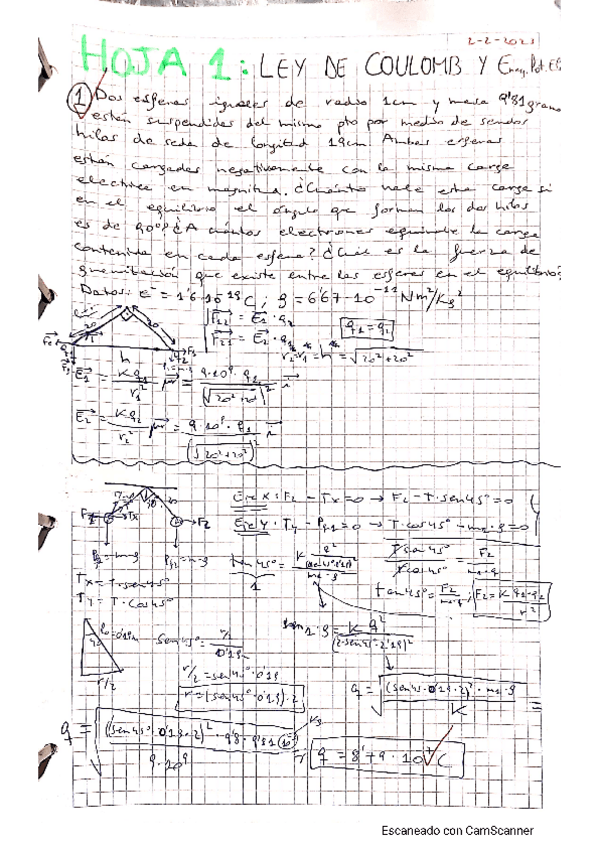 2-2-2021
HOJA 1: LEY DE COULOMB Y Enrg. Pot. El
1 Dos esferas iguales de radio 1cm y masa 9'81 gramo
están suspendidas del mismo pto por medio de sendos
hilos de seda de longitud 19cm. Ambas esferas
están cargadas negativamente con la misma carga
eléctrica en magnitud. ¿Cuánto vale esta carga si
en el equilibrio el ángulo que forman los dos hilos
es de 90º? ¿A cuántos electrones equivale la carga
contenida en cada esfera? ¿Cuál es la fuerza de
gravitación que existe entre las esferas en el equilibrio?
Datos: e⁻ = 1'6·10⁻¹⁹ C; G = 6'67·10⁻¹¹ Nm²/kg²
F₁₂ = E₁·q₂
F₂₁ = E₂·q₁
q₁ = q₂
h = √20²+20²
20
20
h
E₁ = K q₁ / r₁² = 9·10⁹·q₁ / (√20²+20²)² i
E₂ = K q₂ / r₂² = 9·10⁹· / (√20²+20²)² i
Eje X: F₂ - Tx = 0 → F₂ - T·sen45º = 0
Eje Y: Ty - = 0 → T·cos45º - m₂·g = 0
F₂
Tx
F₂
= m·g
= m·g
Tx = T·sen45º
Ty = T·cos45º
tan45º = K q² / m₂·g
1
T sen45º / T cos45º = F₂ / m₂·g
tan45º = F₂ / m·g ; F₂ = K q₁·q₂ / r²
1·g = K q² / (2·sen45º·0'19)²
45
r/2
sen45º = r/2 / 0'19
r/2 = sen45º·0'19
r = (sen45º·0'19)·2
q = √(sen45·0'19·2)²·m₂·g / K =
q = √(sen45º·0'19·2)²·9'8·9'81(10⁻³) / 9·10⁹
kg
q = 8'79·10⁻⁷ C
Escaneado con CamScanner